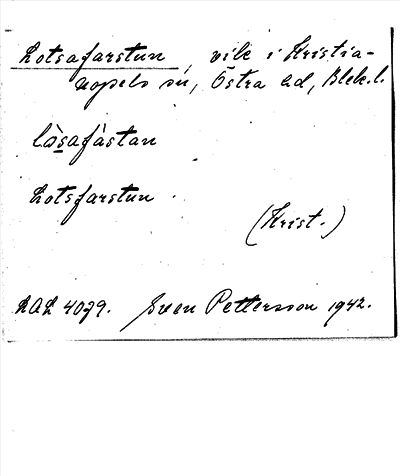 Lotsafarstun, vik i Kristia-
nopels sn, Östra hd, Blek.l.
lo̍sa̲fàstan
Lotsfarstun
(Krist.)
LAL 4079. Sven Pettersson 1942.